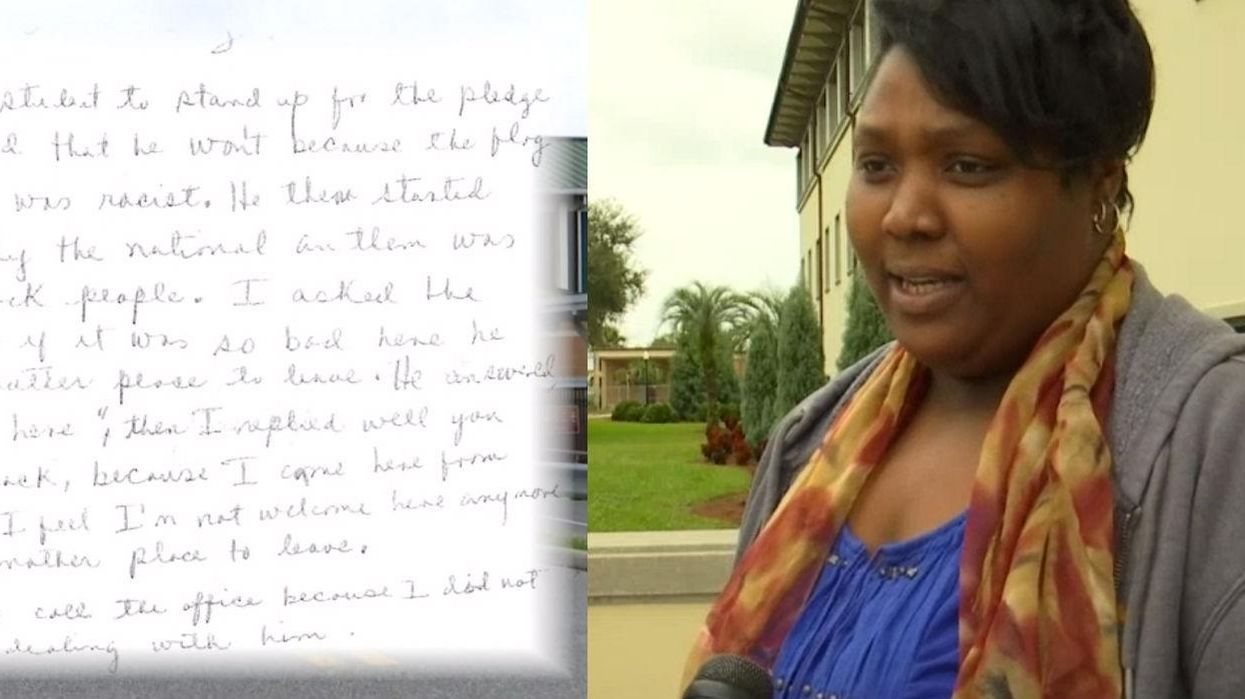 2
student to stand up for the pledge
that he won't because the flag
was racist. He then started
the national anthem was
people. I asked the
if it was so bad here he
place to leave. He answered,
here", then I replied well you
because I came here from
I feel I'm not welcome here anymore
another place to leave.
call the office because I did not
dealing with him.